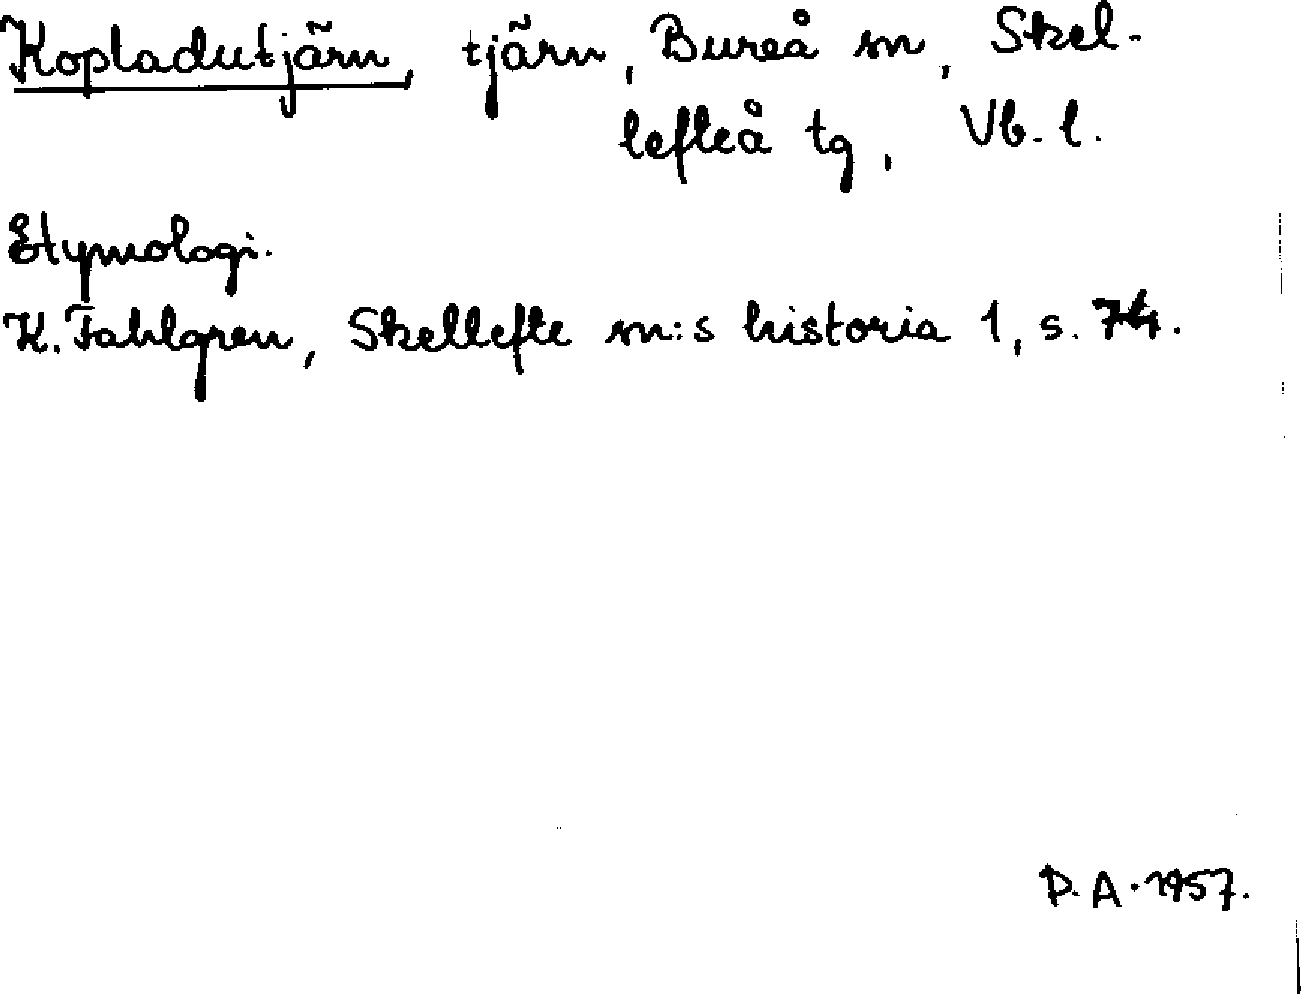 Kopladutjärn, tjärn, Bureå sn, Skel-
lefteå tg, Vb. l.
Etymologi.
K. Fahlgren, Skellefte sn:s historia 1, s. 74.
P. A. 1957.